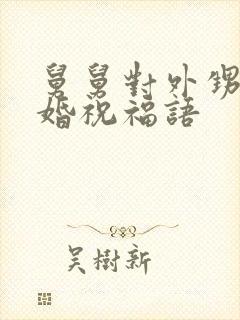 舅舅對外甥
婚祝福語
吳樹新